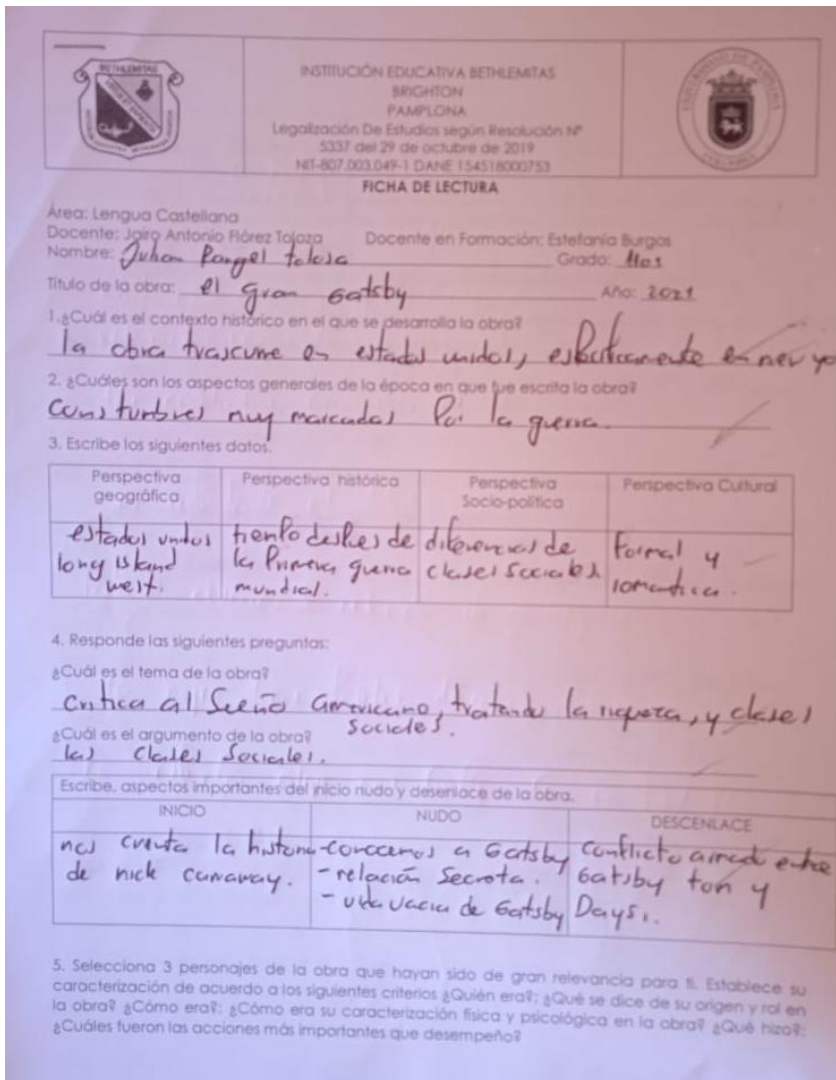 BETHLEMITAS
INSTITUCIÓN EDUCATIVA BETHLEMITAS
BRIGHTON
PAMPLONA
Legalización De Estudios según Resolución Nº
5337 del 29 de octubre de 2019
NIT-807.003.049-1 DANE 154518000753
FICHA DE LECTURA
Área: Lengua Castellana
Docente: Jairo Antonio Flórez Toloza Docente en Formación: Estefanía Burgos
Nombre: Julian Rangel tolosa Grado: 1101
Titulo de la obra: el gran Gatsby Año: 2021
1.¿Cuál es el contexto histórico en el que se desarrolla la obra?
la obra trascurre en estados unidos, en new yo
2. ¿Cuáles son los aspectos generales de la época en que fue escrita la obra?
Constunbres muy marcadas Por la guerra.
3. Escribe los siguientes datos.
Perspectiva geográfica
Perspectiva histórica
Perspectiva Socio-política
Perspectiva Cultural
estados unidos
long island
west.
tienpo despues de
la Primera guerra
mundial.
diferencias de
clases Sociales
Formal y
romantica.
4. Responde las siguientes preguntas:
¿Cuál es el tema de la obra?
Critica al Sueño americano, tratando la riqueza, y clases
Sociales.
¿Cuál es el argumento de la obra?
las Clases Sociales.
Escribe, aspectos importantes del inicio nudo y desenlace de la obra.
INICIO
NUDO
DESCENLACE
nos cuenta la historia
de nick carraway.
-conocemos a Gatsby
-relación Secreta.
- vida vacia de Gatsby
Conflicto armado entre
Gatsby ton y
Daysi.
5. Selecciona 3 personajes de la obra que hayan sido de gran relevancia para ti. Establece su
caracterización de acuerdo a los siguientes criterios ¿Quién era?; ¿Qué se dice de su origen y rol en
la obra? ¿Cómo era?: ¿Cómo era su caracterización física y psicológica en la obra? ¿Qué hizo?:
¿Cuáles fueron las acciones más importantes que desempeño?